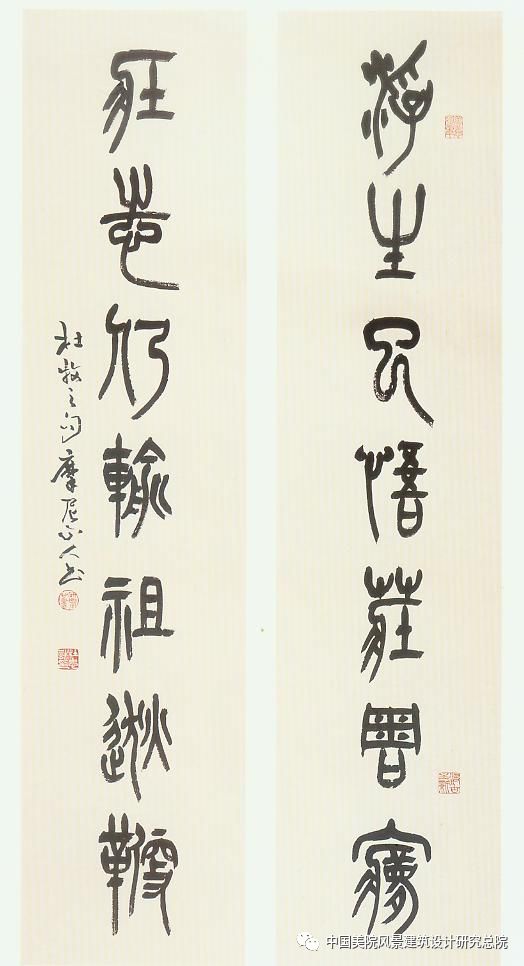 浮生已悟莊周夢
壯志仍輸祖逖鞭
杜牧之句摩尼山人書
中国美院风景建筑设计研究总院